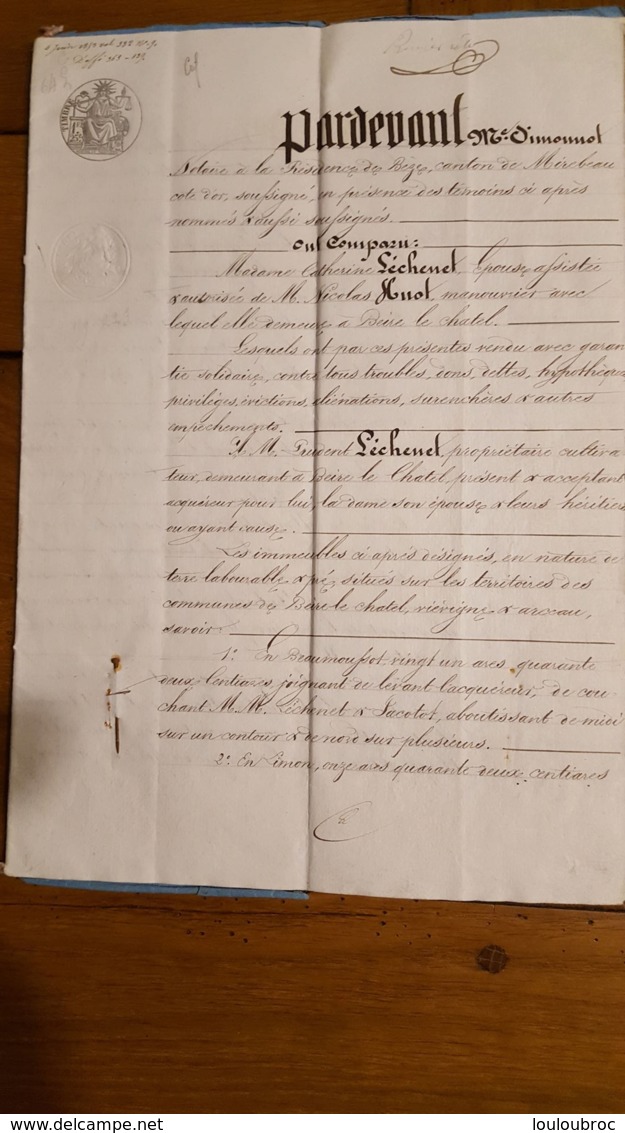 TIMBRE
Pardevant Me Simonnot
Notaire à la Résidence de Bèze, canton de Mirebeau
cote d'or, soussigné, en présence des témoins ci après
nommés & aussi soussignés.
Ont Comparu:
Madame Catherine Léchenet, Epouse assistée
& autorisée de M. Nicolas Huot, manouvrier avec
lequel elle demeure à Beire le chatel.
Lesquels ont par ces présentes vendu avec garan
tie solidaire, contre tous troubles, dons, dettes, hypothèques
privilèges, évictions, aliénations, surenchères & autres
empêchements.
A M. Prudent Léchenet, propriétaire cultiva
teur, demeurant à Beire le Chatel, présent & acceptant
acquéreur pour lui, la dame son épouse & leurs héritiers
ou ayant cause.
Les immeubles ci après désignés, en nature de
terre labourable & pré, situés sur les territoires des
communes de Beire-le chatel, viévigne & arceau,
savoir:
1º. En Beaumoussot, vingt un ares, quarante
deux Centiares, joignant de levant l'acquéreur, de cou
chant M.M. Léchenet & Jacotot, aboutissant de midi
sur un contour & de nord sur plusieurs.
2º. En Limon, onze ares quarante deux centiares
delcampe.net
louloubroc